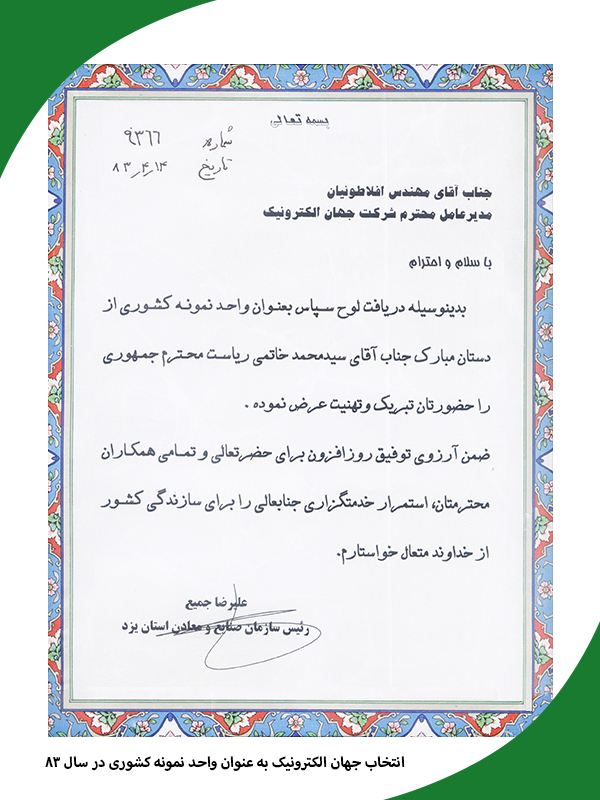 بسمه تعالی
شماره ۹۳۶۶
تاریخ ۸۳٫۴٫۱۴
جناب آقای مهندس افلاطونیان
مدیرعامل محترم شرکت جهان الکترونیک
با سلام و احترام
بدینوسیله دریافت لوح سپاس بعنوان واحد نمونه کشوری از
دستان مبارک جناب آقای سیدمحمد خاتمی ریاست محترم جمهوری
را حضورتان تبریک و تهنیت عرض نموده .
ضمن آرزوی توفیق روزافزون برای حضرتعالی و تمامی همکاران
محترمتان، استمرار خدمتگزاری جنابعالی را برای سازندگی کشور
از خداوند متعال خواستارم.
علیرضا جمیع
رئیس سازمان صنایع و معادن استان یزد
انتخاب جهان الکترونیک به عنوان واحد نمونه کشوری در سال ۸۳